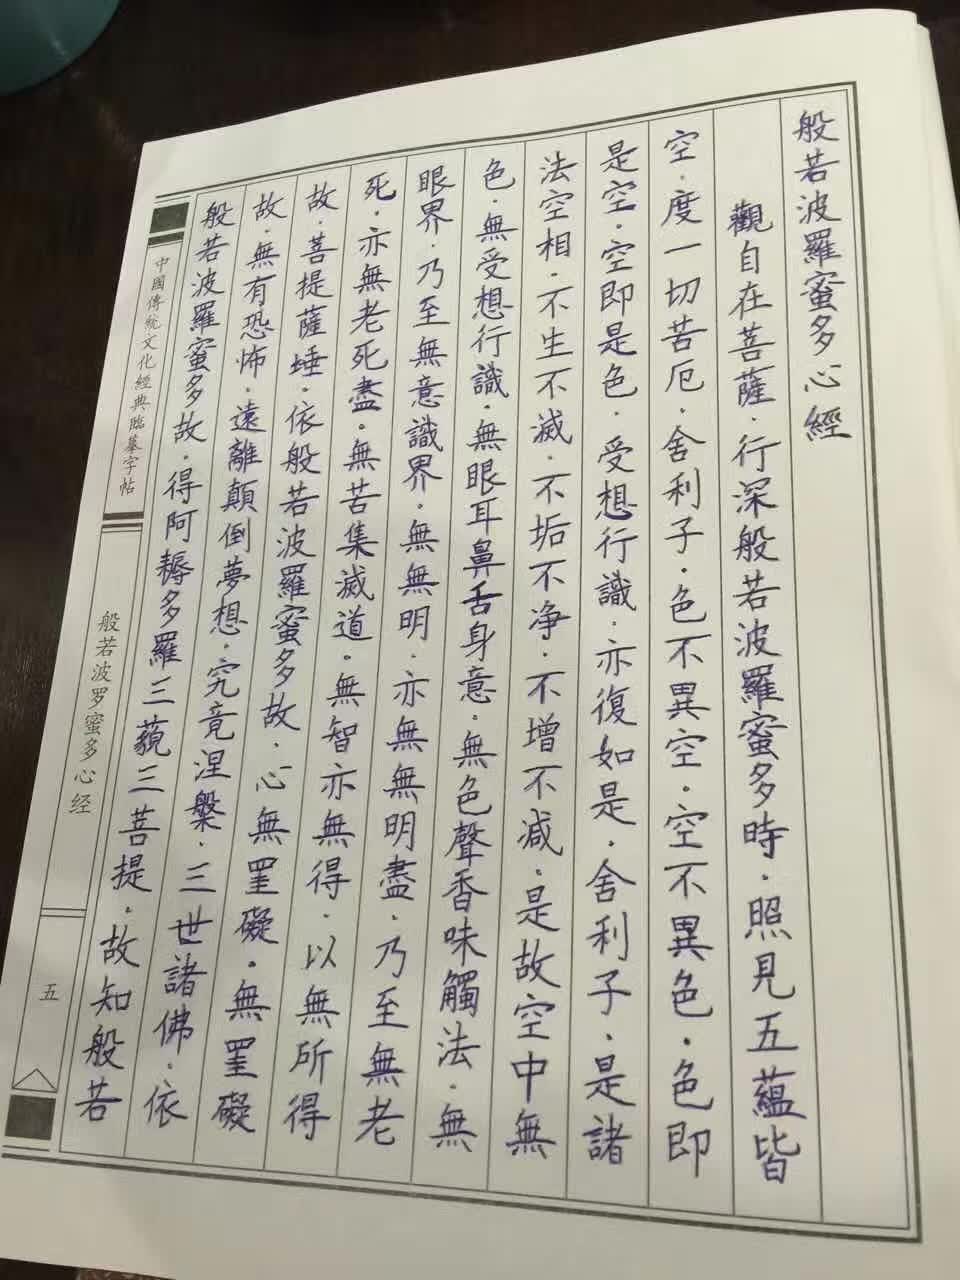 般若波羅蜜多心經
觀自在菩薩．行深般若波羅蜜多時．照見五蘊皆
空．度一切苦厄．舍利子．色不異空．空不異色．色即
是空．空即是色．受想行識．亦復如是．舍利子．是諸
法空相．不生不滅．不垢不净．不增不减．是故空中無
色．無受想行識．無眼耳鼻舌身意．無色聲香味觸法．無
眼界．乃至無意識界．無無明．亦無無明盡．乃至無老
死．亦無老死盡．無苦集滅道．無智亦無得．以無所得
故．菩提薩埵．依般若波羅蜜多故．心無罣礙．無罣礙
故．無有恐怖．遠離顛倒夢想．究竟涅槃．三世諸佛．依
般若波羅蜜多故．得阿耨多羅三藐三菩提．故知般若
中國傳統文化經典臨摹字帖
般若波罗蜜多心经
五